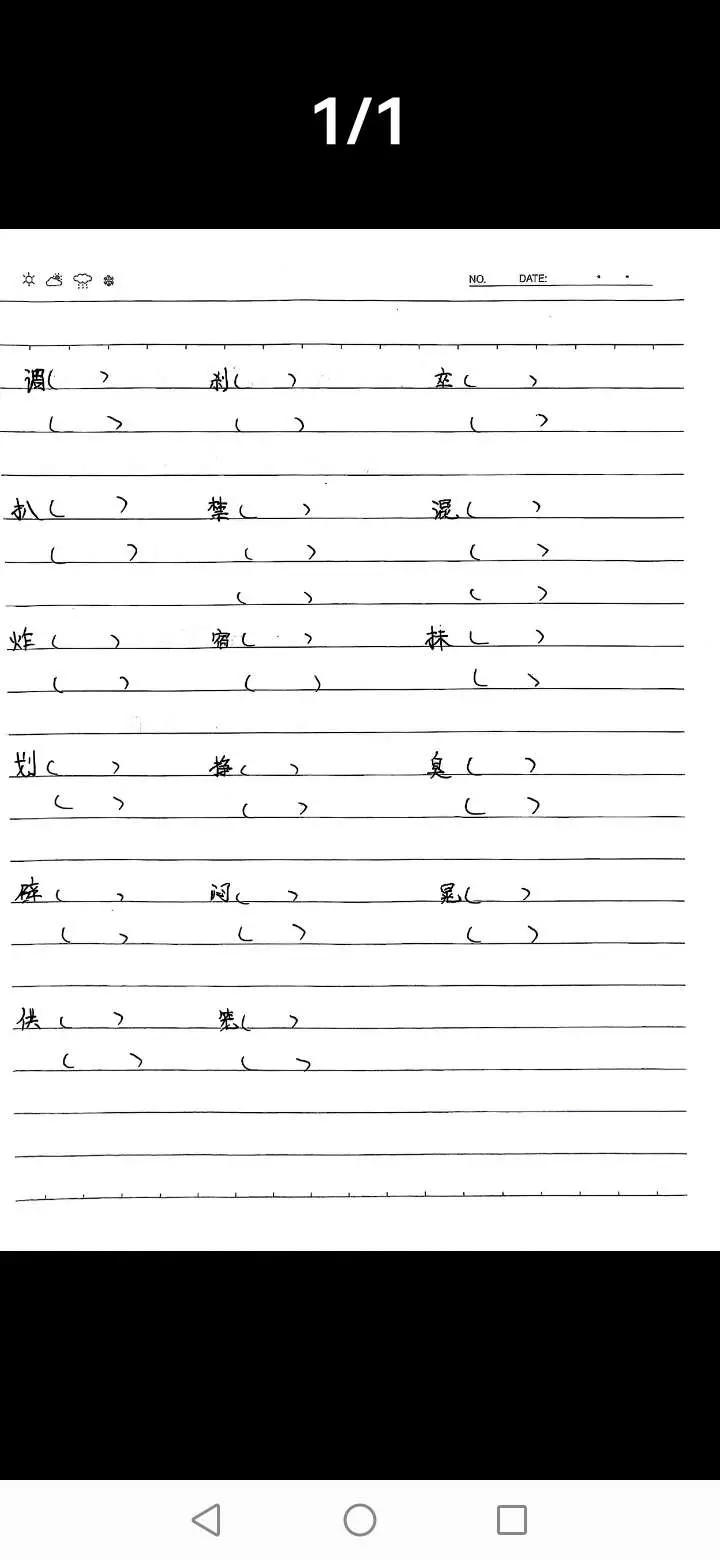 1/1
NO. DATE:
调( ) 刹( ) 卒( )
( ) ( ) ( )
扒( ) 禁( ) 混( )
( ) ( ) ( )
( ) ( )
炸( ) 宿( ) 抹( )
( ) ( ) ( )
划( ) 挣( ) 臭( )
( ) ( ) ( )
( ) 闷( ) 晃( )
( ) ( ) ( )
供( ) ( )
( ) ( )